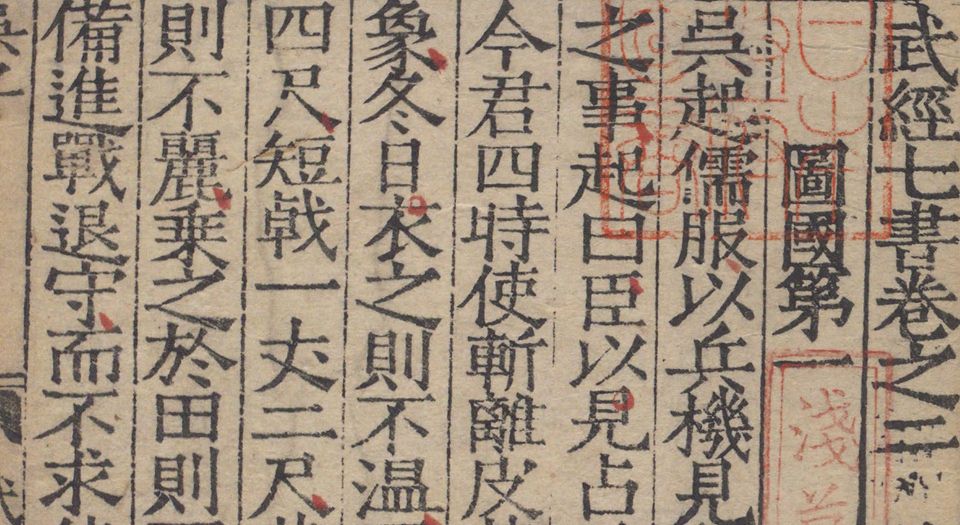 武經七書卷之二
圖國第一
吳起儒服以兵機見
之事起曰臣以見占
今君四時使斬離皮
象冬日衣之則不温
四尺短戟一丈二尺
則不麗乘之於田則
備進戰退守而不求
淺